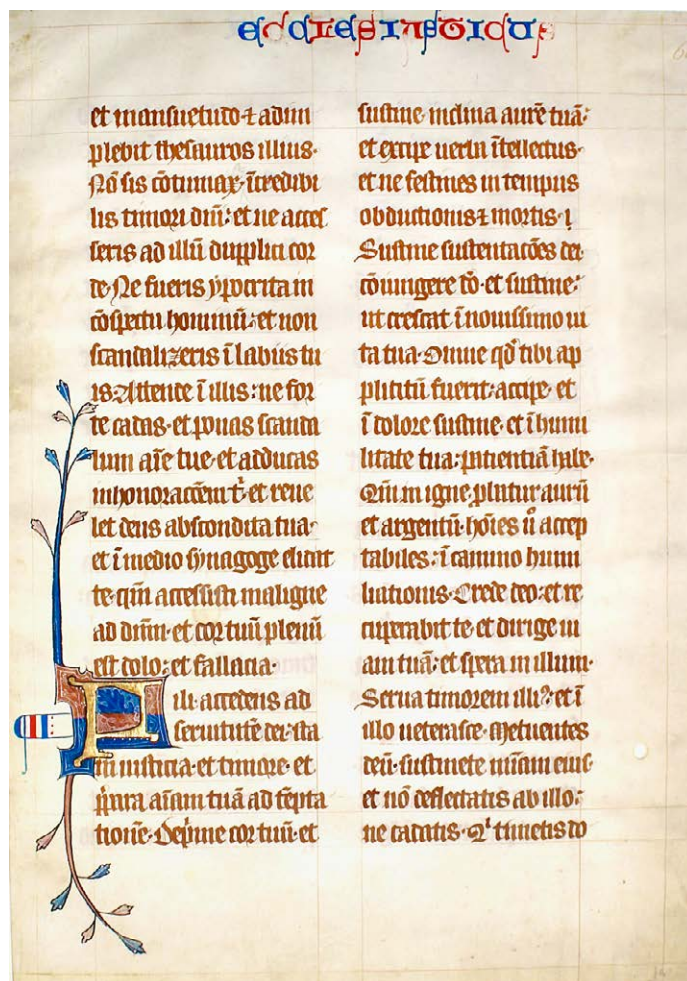 ECCLESIASTICUS
et mansuetudo ⁊ adim
plebit thesauros illius·
Nō sis cōtumax· īcredibi
lis timori dñi: et ne acces
seris ad illū dupplici cor
de· Ne fueris ypocrita in
cōspectu hominū: et non
scandalizeris ī labiis tu
is· Attende ī illis: ne for
te cadas· et ponas scanda
lum aīe tue· et adducas
inhonoracōem t̄· et reue
let deus abscondita tua·
et ī medio synagoge elidat
te· qm̄ accessisti maligne
ad dñm· et cor tuū plenū
est dolo: et fallacia·
Fili· accedens ad
seruitutē dei: sta
in iusticia· et timore· et
p̄para aīam tuā ad tēpta
tionē· Dep̄me cor tuū· et
sustine· inclina aurē tuā:
et excipe uerba ītellectus·
et ne festines in tempus
obductionis ⁊ mortis·
Sustine sustentacōes dei·
cōiungere dō· et sustine:
ut crescat ī nouissimo ui
ta tua· Omne qd̄ tibi ap
plicitū fuerit: accipe· et
ī dolore sustine· et ī humi
litate tua: patientiā habe·
Qm̄ in igne ꝓbatur aurū
et argentū· hoīes ū accep
tabiles: ī camino humi
liationis· Crede deo: et re
cuperabit te· et dirige ui
am tuā: et spera in illum·
Serua timorem illiꝰ: et ī
illo ueterasce· Metuentes
deū· sustinete mīam eius·
et nō deflectatis ab illo:
ne cadatis· Qͥ timetis do